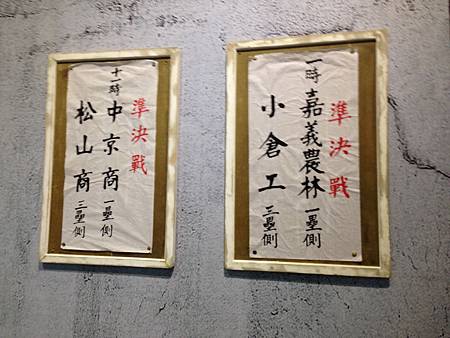 準決戰
一時 嘉義農林 一壘側
小倉工 三壘側
準決戰
十一時 中京商 一壘側
松山商 三壘側